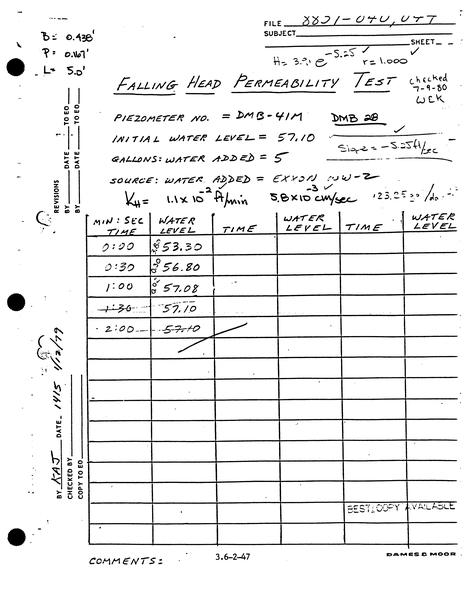 B= 0.438'
P= 0.167'
L= 5.0'
FILE
SUBJECT
SHEET
r = 1.000
FALLING HEAD PERMEABILITY TEST
checked
7-9-80
WCK
PIEZOMETER NO. = DMB-41M DMB 28
INITIAL WATER LEVEL = 57.10
GALLONS: WATER ADDED = 5
SOURCE: WATER ADDED = EXXON WW-2
KH= 1.1 x 10^-2 ft/min 5.8x10^-3 cm/sec
MIN: SEC TIME WATER LEVEL TIME WATER LEVEL TIME WATER LEVEL
0:00 53.30
0:30 56.80
1:00 57.08
1:30 57.10
2:00 57.10
REVISIONS
BY DATE TO EO
BY DATE TO EO
BY KAJ DATE 1415 1/12/79
CHECKED BY
COPY TO EO
BEST COPY AVAILABLE
COMMENTS:
3.6-2-47
DAMES & MOOR